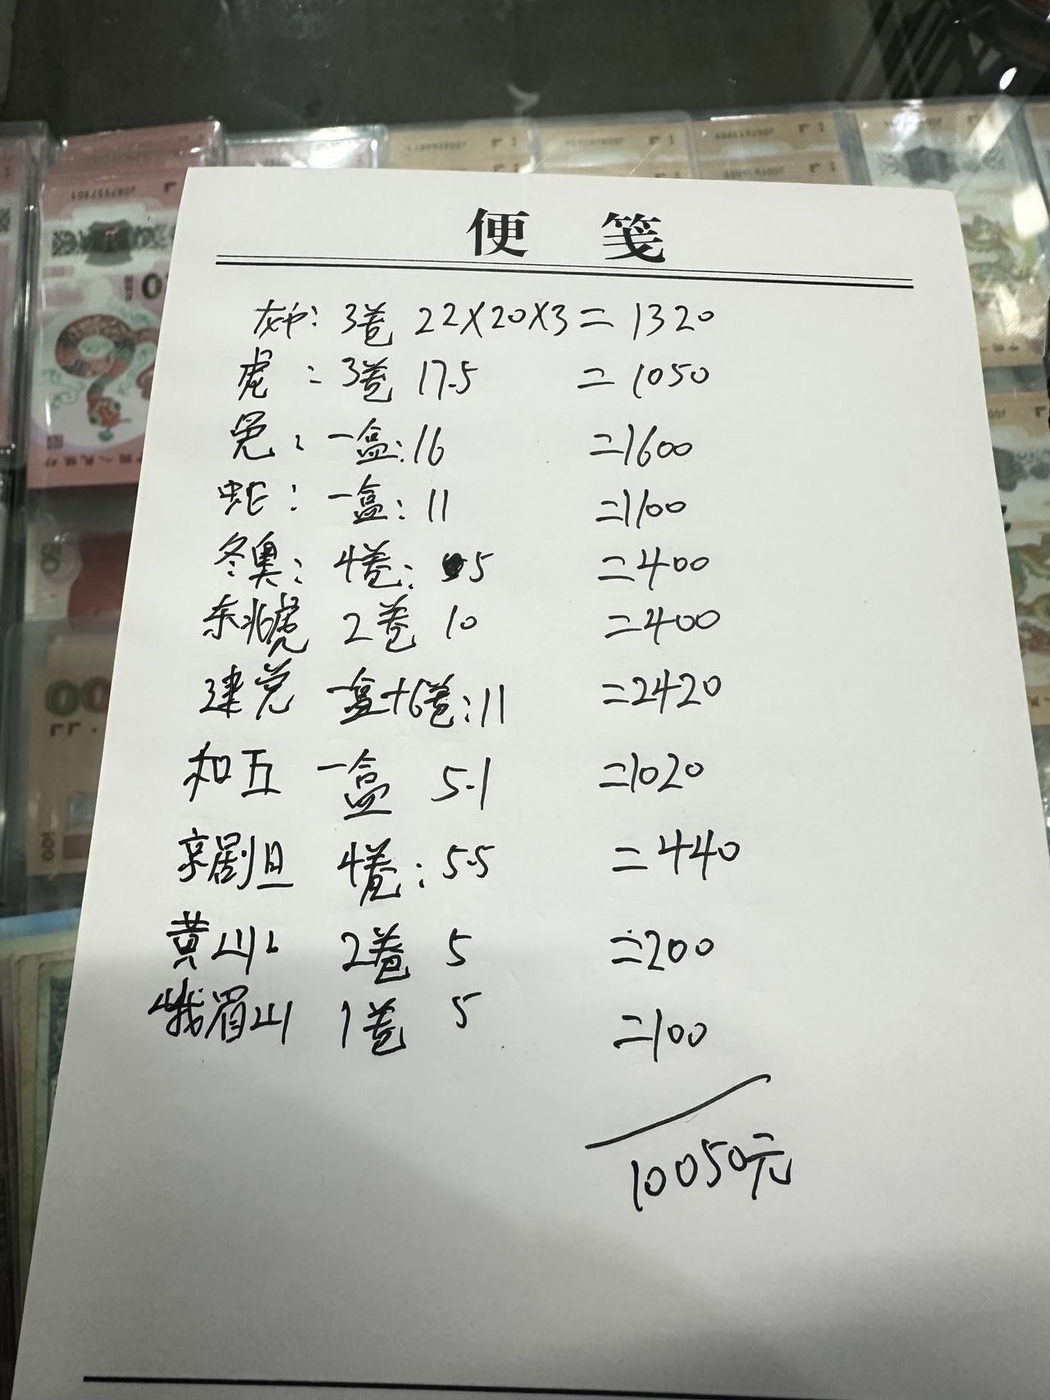 便 笺
3卷 22×20×3=1320
虎:3卷 17.5 =1050
兔:一盒:16 =1600
蛇:一盒:11 =1100
冬奥:4卷:5 =400
东北虎 2卷 10 =400
建党 一盒+6卷:11 =2420
和五 一盒 5.1 =1020
京剧旦 4卷:5.5 =440
黄山 2卷 5 =200
峨眉山 1卷 5 =100
10050元